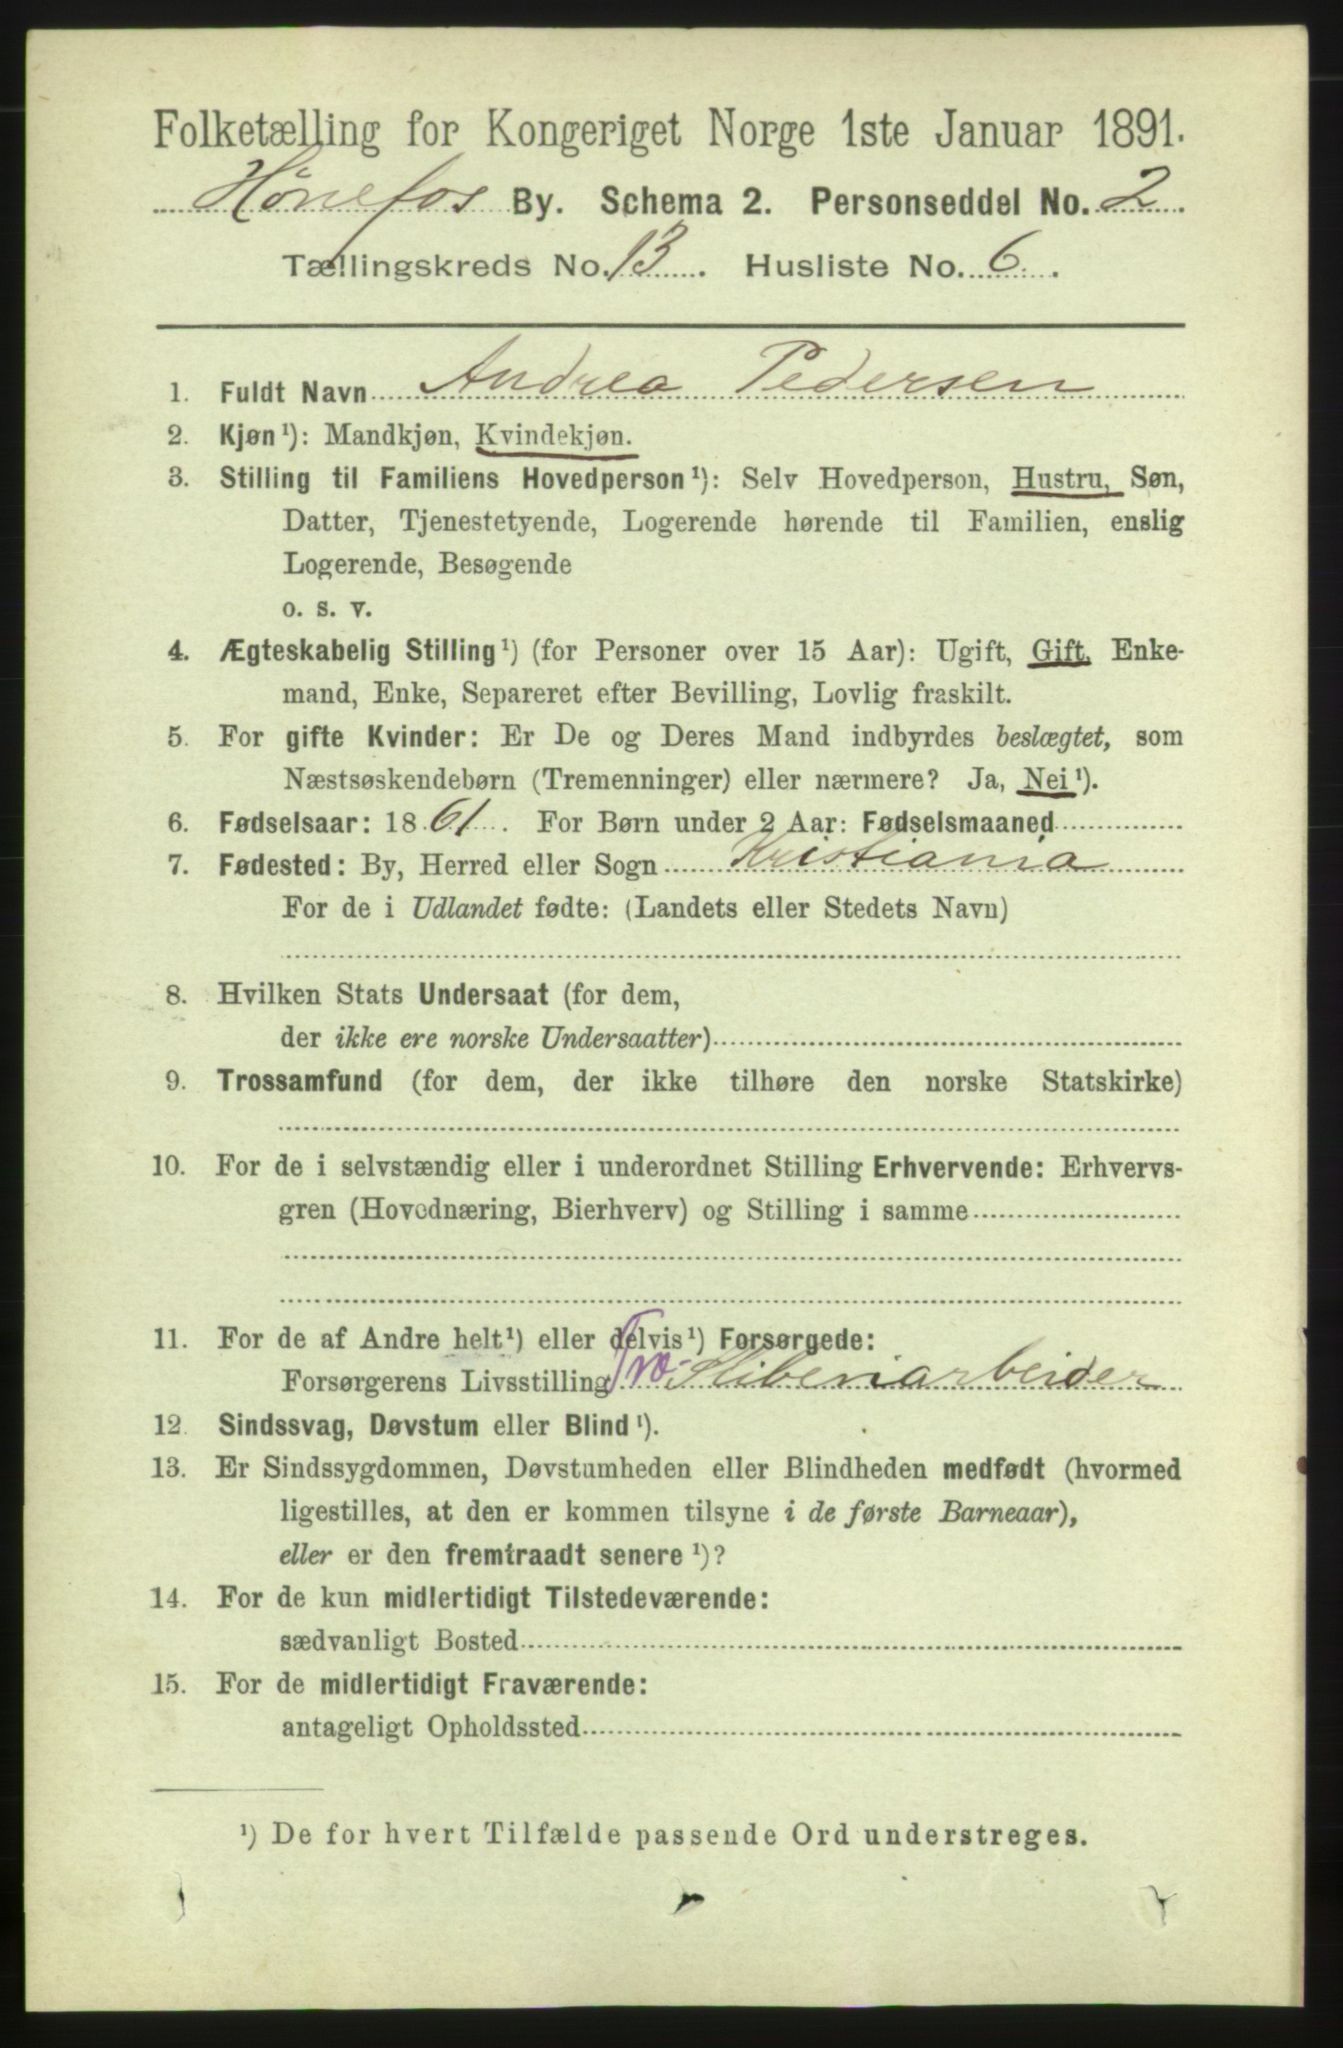 Folketælling for Kongeriget Norge 1ste Januar 1891.
Hønefos By. Schema 2. Personseddel No. 2.
Tællingskreds No. 13. Husliste No. 6.
1. Fuldt Navn Andrea Pedersen
2. Kjøn¹): Mandkjøn, Kvindekjøn.
3. Stilling til Familiens Hovedperson¹): Selv Hovedperson, Hustru, Søn,
Datter, Tjenestetyende, Logerende hørende til Familien, enslig
Logerende, Besøgende
o. s. v.
4. Ægteskabelig Stilling¹) (for Personer over 15 Aar): Ugift, Gift, Enke-
mand, Enke, Separeret efter Bevilling, Lovlig fraskilt.
5. For gifte Kvinder: Er De og Deres Mand indbyrdes beslægtet, som
Næstsøskendebørn (Tremenninger) eller nærmere? Ja, Nei¹).
6. Fødselsaar: 1861. For Børn under 2 Aar: Fødselsmaaned
7. Fødested: By, Herred eller Sogn Kristiania
For de i Udlandet fødte: (Landets eller Stedets Navn)
8. Hvilken Stats Undersaat (for dem,
der ikke ere norske Undersaatter)
9. Trossamfund (for dem, der ikke tilhøre den norske Statskirke)
10. For de i selvstændig eller i underordnet Stilling Erhvervende: Erhvervs-
gren (Hovednæring, Bierhverv) og Stilling i samme
11. For de af Andre helt¹) eller delvis¹) Forsørgede:
Forsørgerens Livsstilling Træ-Sliberiarbeider
12. Sindssvag, Døvstum eller Blind¹).
13. Er Sindssygdommen, Døvstumheden eller Blindheden medfødt (hvormed
ligestilles, at den er kommen tilsyne i de første Barneaar),
eller er den fremtraadt senere¹)?
14. For de kun midlertidigt Tilstedeværende:
sædvanligt Bosted
15. For de midlertidigt Fraværende:
antageligt Opholdssted
¹) De for hvert Tilfælde passende Ord understreges.